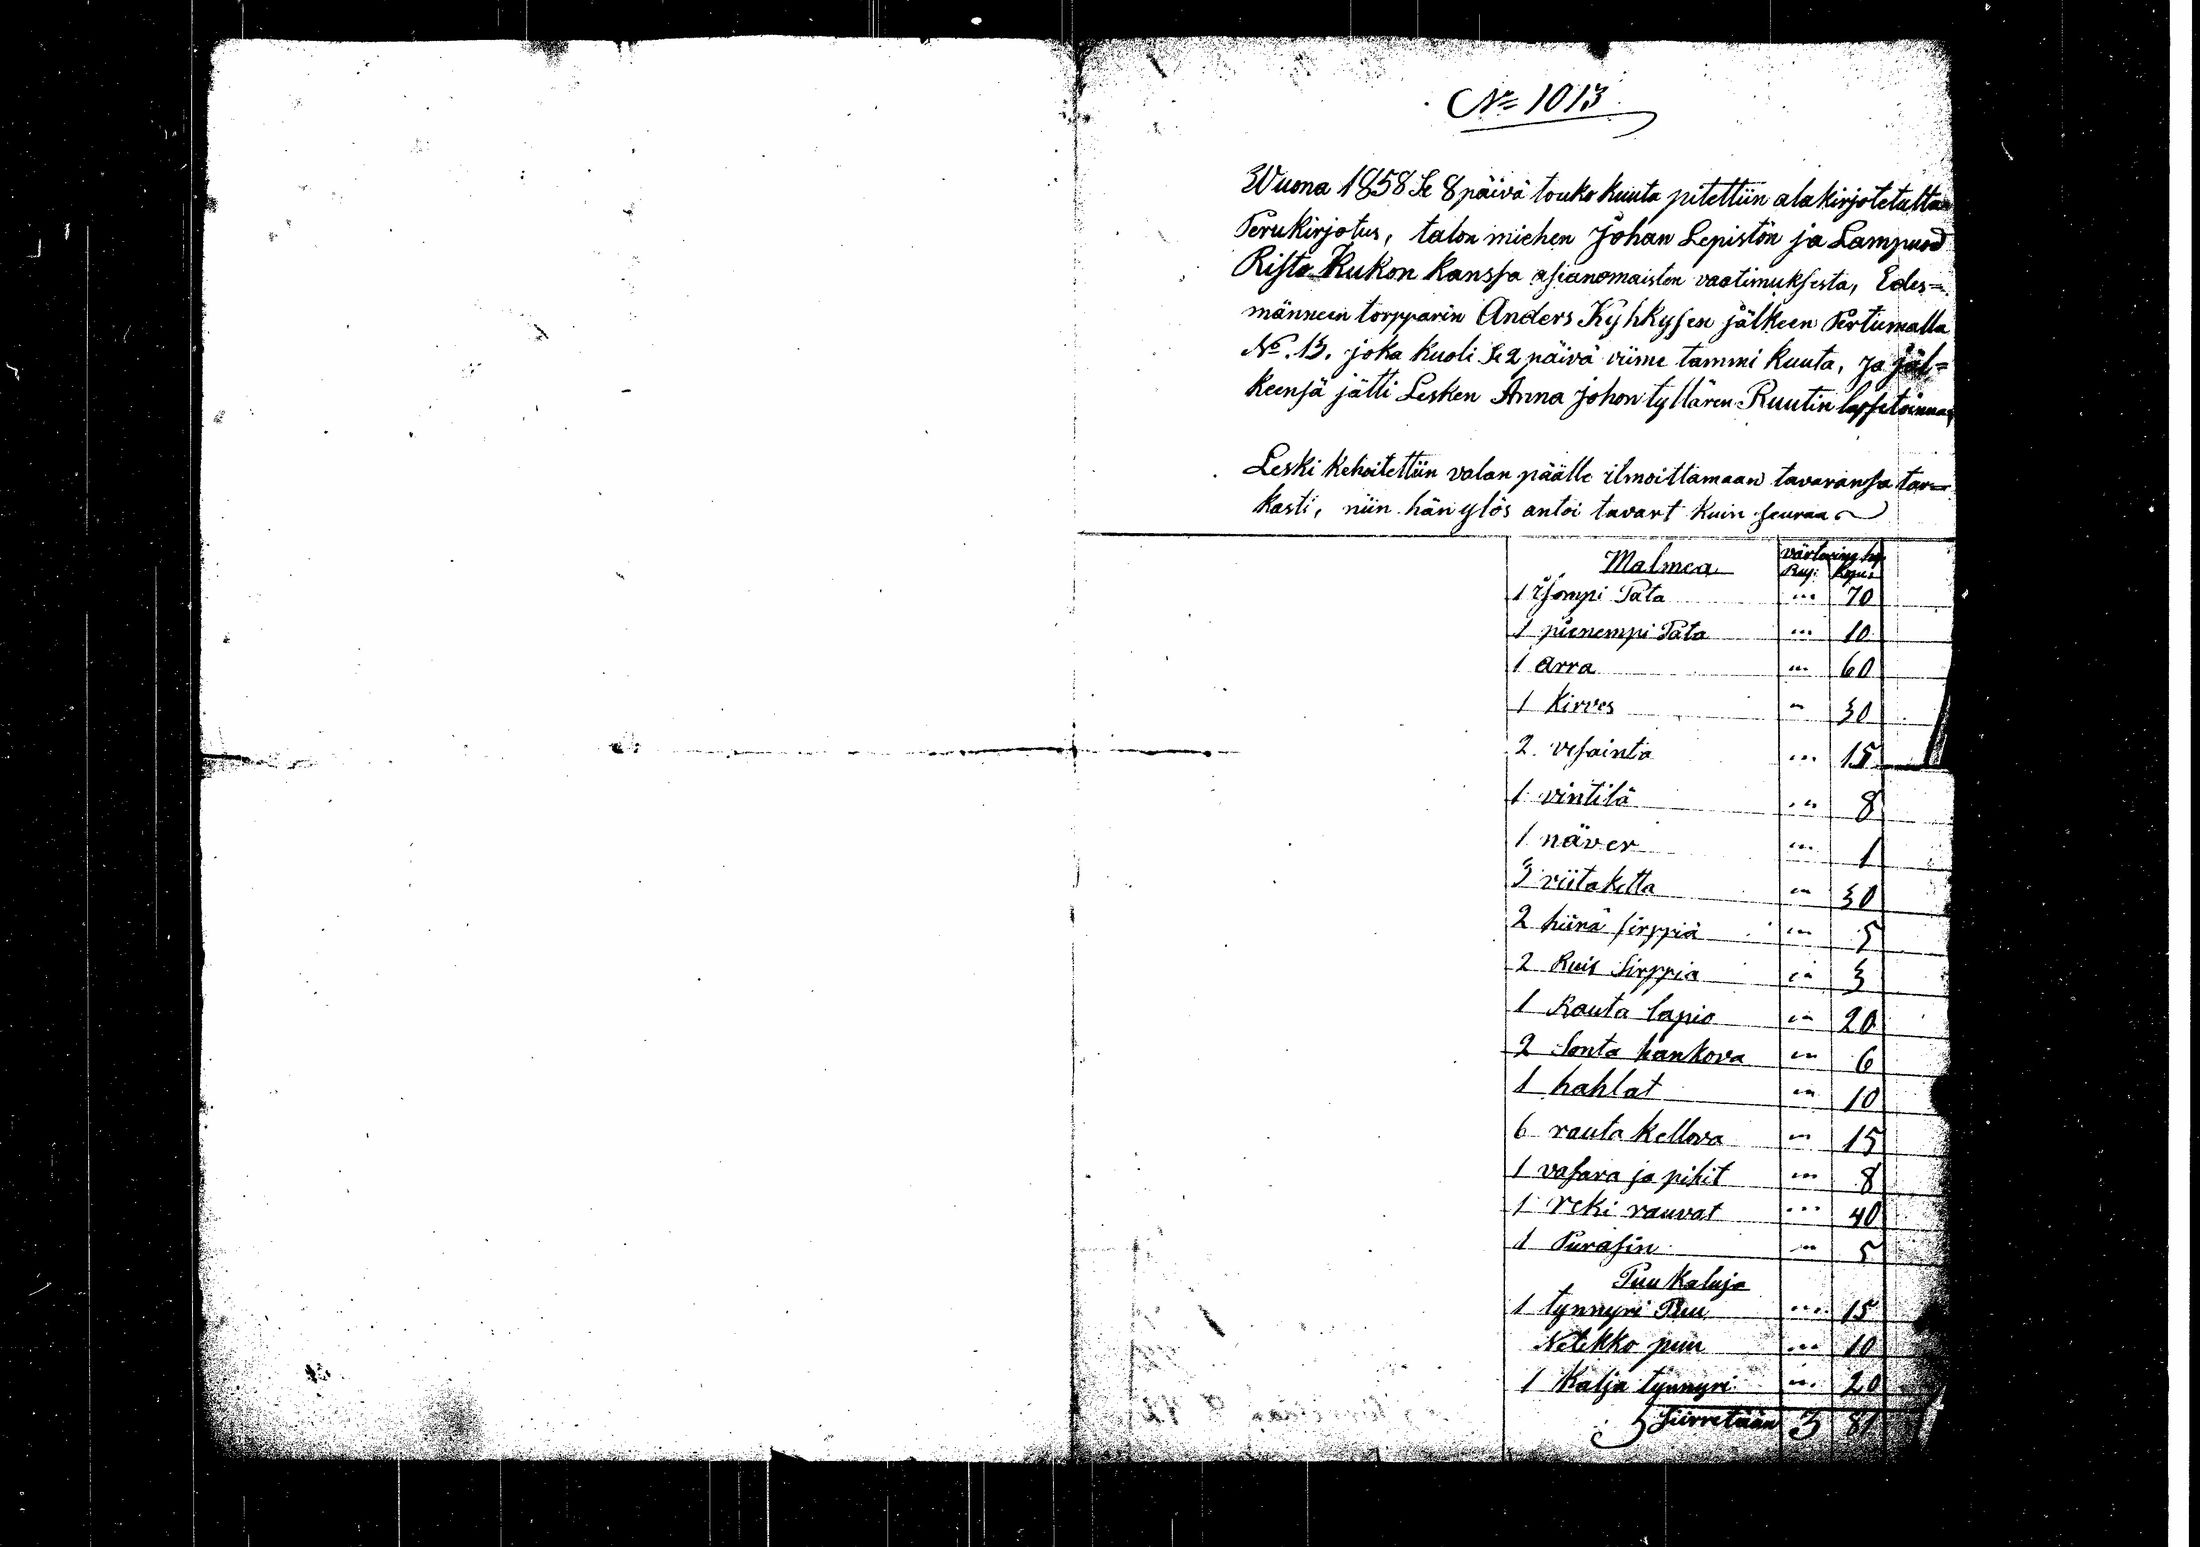 No 1013
Wuona 1858 Se 8 päivä touko kuuta pitettiin alakirjotetultan
Perukirjotus, talon miehen Johan Lepistön ja Lampuod
Risto Kukon kanssa asianomaisten vaatimuksesta, Edes=
männeen torpparin Anders Kyhkysen jälkeen Pertumalla
No. 13. joka kuoli Se 2 päivä viime tammi kuuta, ja jäl=
keensä jätti Lesken Anna Johon tyttären Ruutin
Leski kehoitettiin valan päälle ilmoittamaan tavaransa tar=
kasti, niin hän ylös antoi tavart kuin seuraa
Malmea Rup: Kopis
1 isompi Pata " 70
1 pienempi Pata " 10
1 arra " 60
1 Kirves " 30
2 vesainta " 15
1 vintilä " 8
1 näver " 1
3 viitaketta " 30
2 hiinä sirppiä " 5
2 Ruis Sirppia " 3
1 Rauta lapio " 20
2 Sonta hankova " 6
1 hahlat " 10
6 rauta kellova " 15
1 vasara ja pihit " 8
1 reki rauvat " 40
1 Purasin " 5
Puu kaluja
1 tynnyri Puu " 15
Netekko puu " 10
1 Kalja tynnyri " 20
Siirretään 3 81